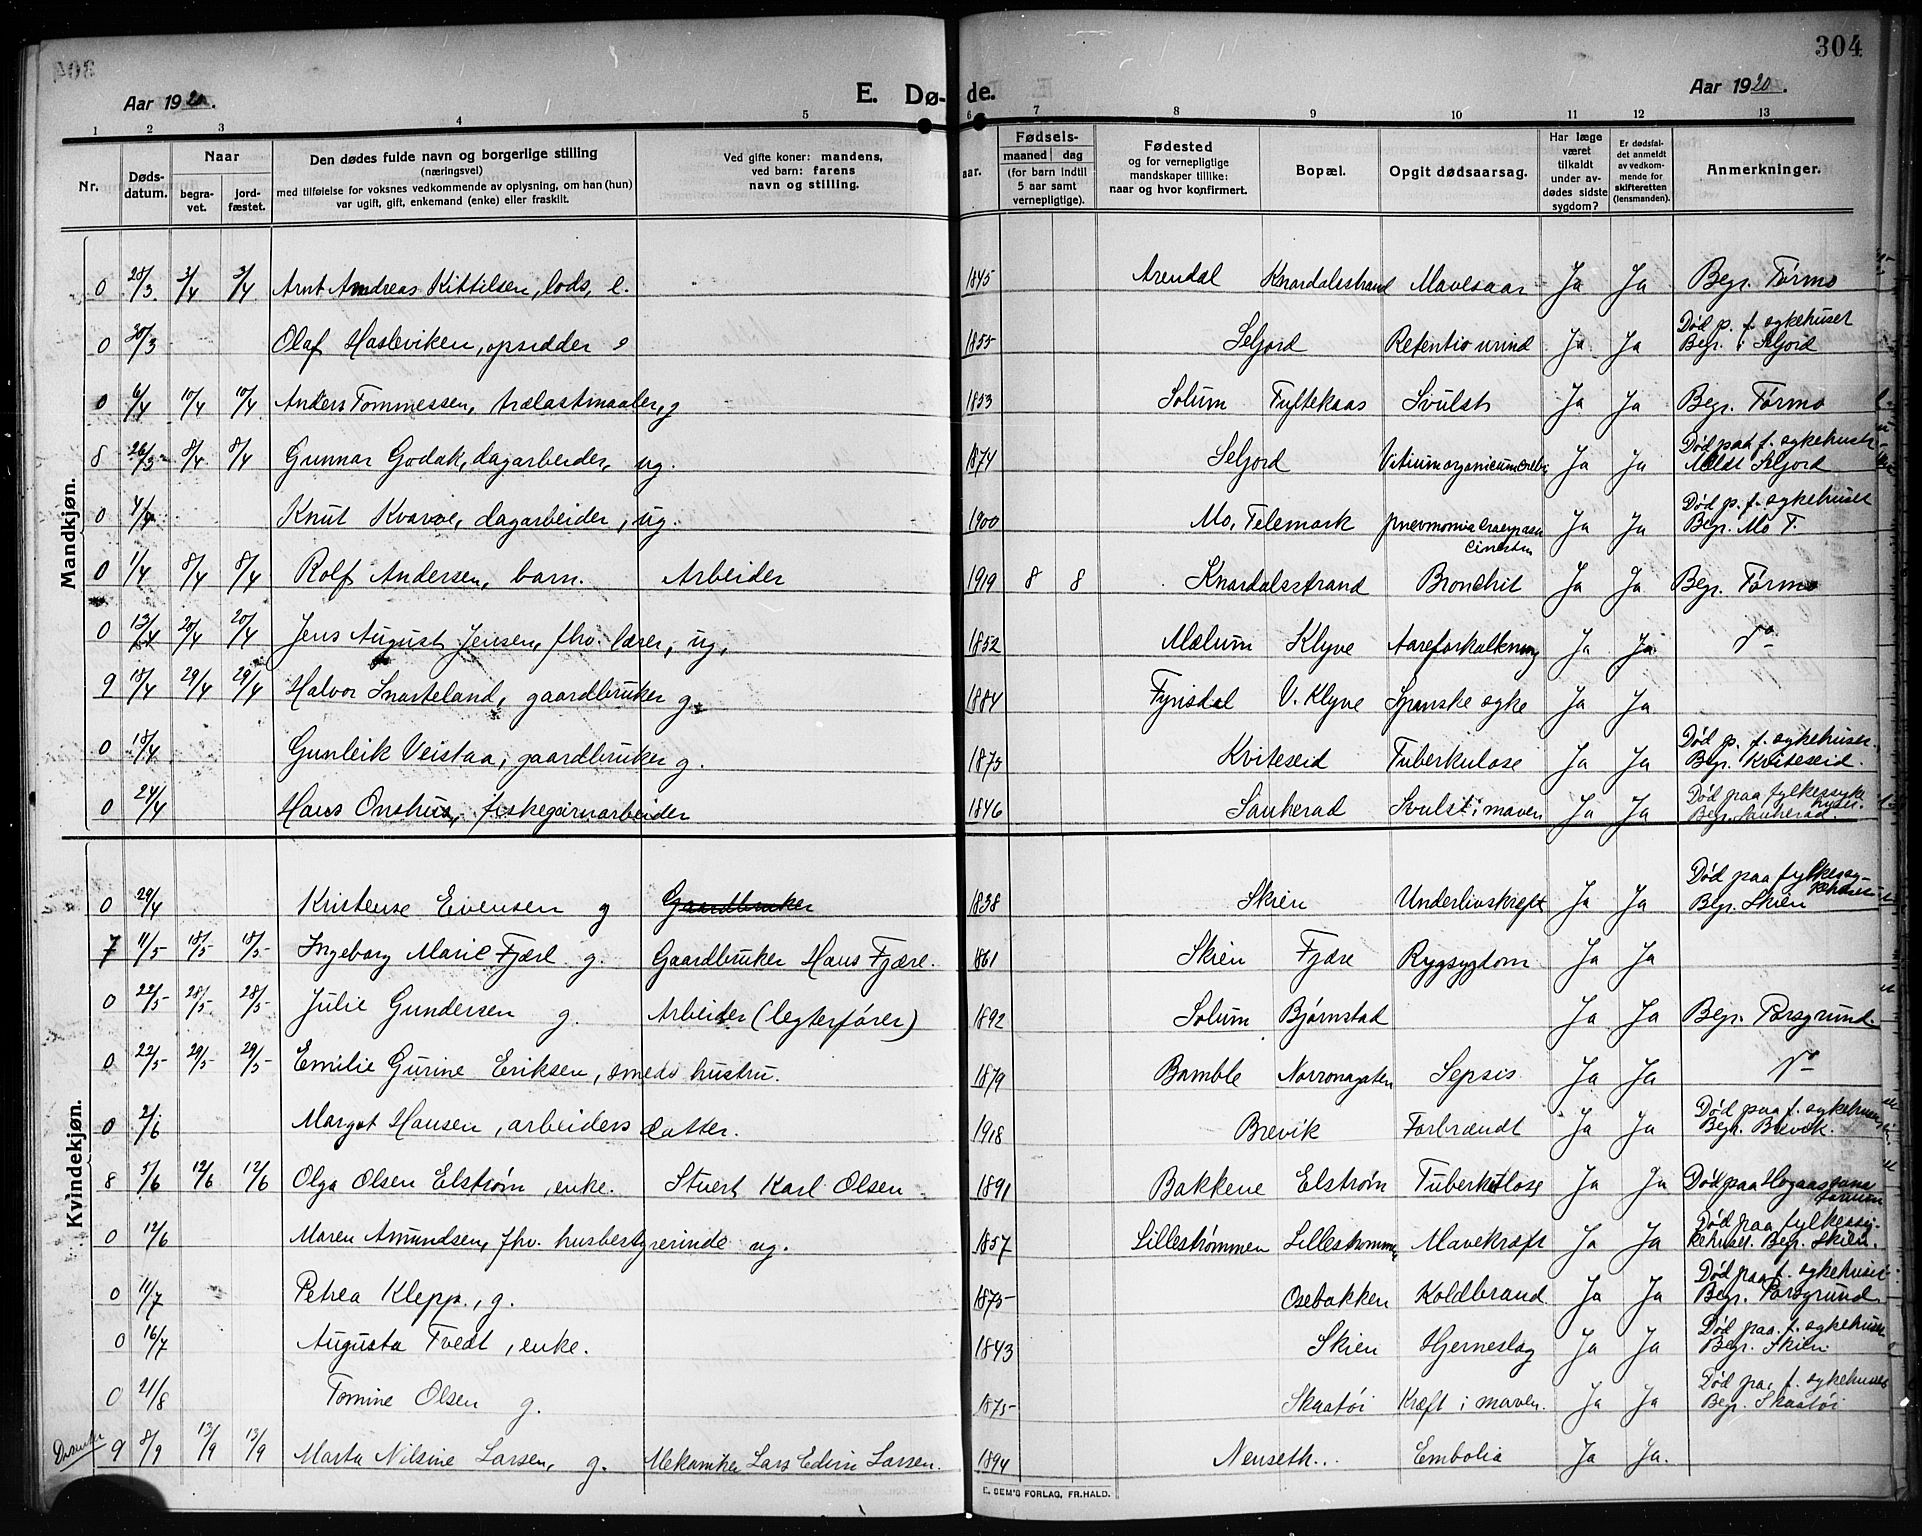 304
Aar 1920.
E. Dø-
de.
Aar 1920.
1 2 3 4 5 6 7 8 9 10 11 12 13
Nr.
Døds-
datum.
Naar
begra-
vet.
jord-
fæstet.
Den dødes fulde navn og borgerlige stilling
(næringsvei)
med tilføielse for voksnes vedkommende av oplysning, om han (hun)
var ugift, gift, enkemand (enke) eller fraskilt.
Ved gifte koner: mandens,
ved barn: farens
navn og stilling.
aar.
Fødsels-
maaned dag
(for barn indtil
5 aar samt
vernepligtige).
Fødested
og for vernepligtige
mandskaper tillike:
naar og hvor konfirmert.
Bopæl.
Opgit dødsaarsag.
Har læge
været
tilkaldt
under av-
dødes sidste
sygdom?
Er dødsfal-
det anmeldt
av vedkom-
mende for
skifteretten
(lensmanden).
Anmerkninger.
Mandkjøn.
0 28/3 3/4 3/4 Arnt Andreas Kittilsen, lods, e. 1845 Arendal Knardalsstrand Mavesaar Ja Ja Begr. Tørmo
0 30/3 Olaf Hasleviken, opsidder 1855 Seljord Retentio urind Ja Ja Død p. f. sykehuset
Begr. i Seljord
0 6/4 10/4 10/4 Anders Tommessen, trælastmaaler, g 1853 Solum Tuftekaas Svulst Ja Ja Begr. Tørmo
8 26/3 8/4 8/4 Gunnar Godak, dagarbeider, ug. 1874 Seljord Vitium organicum Ja Ja Død paa f. sykehuset
Seljord
0 4/4 Knut Kvarve, dagarbeider, ug. 1900 Mo, Telemark Ja Ja Død p. f. sykehuset
Begr. Mo T.
0 1/4 8/4 8/4 Rolf Andersen, barn. Arbeider 1919 8 8 Knardalsstrand Bronchit Ja Ja Begr. Tørmo
0 13/4 20/4 20/4 Jens August Jensen, fhv. lærer, ug. 1852 Mælum Klyve Aareforkalkning Ja Ja do
9 18/4 29/4 29/4 Halvor Snarteland, gaardbruker g. 1884 Fyrisdal V. Klyve Spanske syke Ja Ja
0 18/4 Gunleik Veistaa, gaardbruker g. 1875 Kviteseid Tuberkulose Ja Ja Død p. f. sykehuset.
Begr. Kviteseid.
0 24/4 Hans Onshus, fiskegarnarbeider 1846 Sauherad Svulst i maven Ja Ja Død paa fylkessyke
huset.
Begr. Sauherad.
Kvindekjøn.
0 29/4 Kristense Evensen g Gaardbruker 1838 Skien Underlivskræft Ja Ja Død paa fylkessy-
kehuset
Begr. Skien
7 11/5 18/5 18/5 Ingeborg Marie Fjære g. Gaardbruker Hans Fjære. 1861 Skien Fjære Rygsygdom Ja Ja
0 22/5 28/5 28/5 Julie Gundersen g. Arbeider (legterfører) 1892 Solum Bjørnstad Ja Ja Begr. Porsgrund.
0 22/5 29/5 29/5 Emilie Gurine Eriksen, smeds hustru. 1879 Bamble Norronagaten Sepsis Ja Ja do
0 2/6 Margot Hansen, arbeiders datter. 1918 Brevik Forbrændt Ja Ja Død paa f. sykehuset
Begr. Brevik.
8 5/6 12/6 12/6 Olga Olsen Elstrøm, enke. Stuert Karl Olsen 1891 Bakkene Elstrøm Tuberkulose Ja Ja Død paa
0 12/6 Maren Amundsen, fhv. husbestyrerinde ug. 1857 Lillestrømmen Lillestrømmen Mavekræft Ja Ja Død paa fylkessy-
kehuset. Begr. Skien.
0 11/7 Petrea Klepp, g. 1875 Osebakken Koldbrand Ja Ja Død paa f. sykehuset
Begr. Porsgrund
0 16/7 Augusta Tvedt, enke. 1843 Skien Hjerneslag Ja Ja Død paa f. sykehuset
Begr. Skien
0 21/8 Tomine Olsen g. 1875 Skaatøi Kræft i maven. Ja Ja Død paa f. sykehuset
Begr. Skaatøi
9 8/9 13/9 13/9 Marta Nilsine Larsen, g. Mekaniker Lars Edvin Larsen. 1894 Nenseth. Embolia Ja Ja.
E. SEM'S FORLAG, FR.HALD.